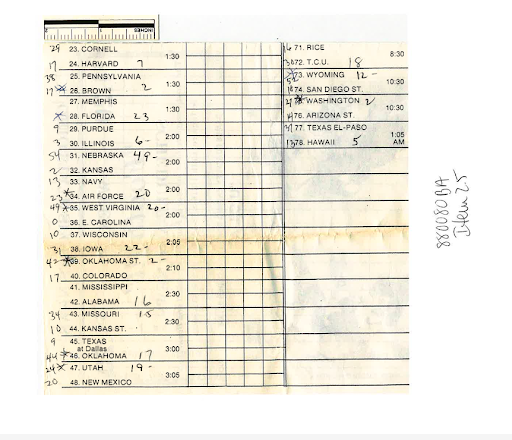 INCHES
29 23. CORNELL
17 24. HARVARD 7 1:30
38 25. PENNSYLVANIA
17 26. BROWN 2 1:30
27. MEMPHIS
28. FLORIDA 23 1:30
9 29. PURDUE
3 30. ILLINOIS 6- 2:00
54 31. NEBRASKA 49-
2 32. KANSAS 2:00
13 33. NAVY
23 34. AIR FORCE 20 2:00
49 35. WEST VIRGINIA 20-
0 36. E. CAROLINA 2:00
10 37. WISCONSIN
31 38. IOWA 22- 2:05
42 39. OKLAHOMA ST. 2-
17 40. COLORADO 2:10
41. MISSISSIPPI
42. ALABAMA 16 2:30
34 43. MISSOURI 15
10 44. KANSAS ST. 2:30
9 45. TEXAS
at Dallas
44 46. OKLAHOMA 17 3:00
24 47. UTAH 19-
20 48. NEW MEXICO 3:05
71. RICE
72. T.C.U. 18 8:30
73. WYOMING 12-
74. SAN DIEGO ST. 10:30
WASHINGTON 2
76. ARIZONA ST. 10:30
77. TEXAS EL-PASO
78. HAWAII 5 1:05
AM
880080BA
Item 25